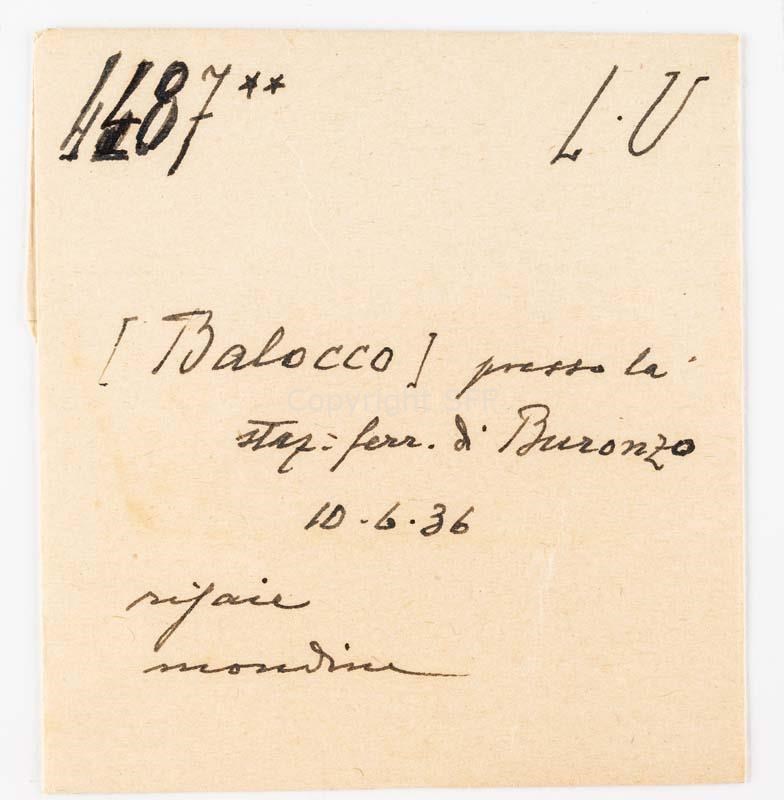 4487** L.V
[Balocco] presso la
staz: ferr. di Buronzo
10-6-36
risaie
mondine